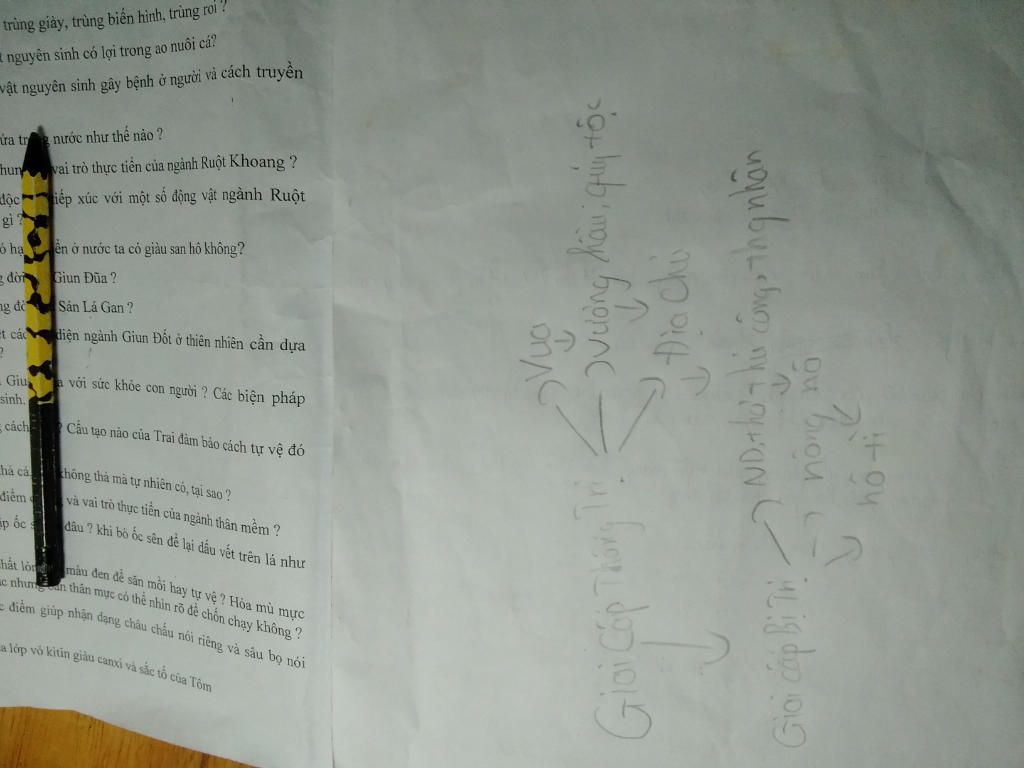 trùng giày, trùng biến hình, trùng roi ?
nguyên sinh có lợi trong ao nuôi cá?
vật nguyên sinh gây bệnh ở người và cách truyền
nước như thế nào ?
vai trò thực tiễn của ngành Ruột Khoang ?
độc tiếp xúc với một số động vật ngành Ruột
gì ?
ở nước ta có giàu san hô không?
Giun Đũa ?
Sán Lá Gan ?
diện ngành Giun Đốt ở thiên nhiên cần dựa
?
với sức khỏe con người ? Các biện pháp
sinh.
cách ? Cấu tạo nào của Trai đảm bảo cách tự vệ đó
thả cá không thả mà tự nhiên có, tại sao ?
điểm và vai trò thực tiễn của ngành thân mềm ?
ốc đâu ? khi bò ốc sên để lại dấu vết trên lá như
màu đen để săn mồi hay tự vệ ? Hỏa mù mực
nhưng thân mực có thể nhìn rõ để chốn chạy không ?
điểm giúp nhận dạng châu chấu nói riêng và sâu bọ nói
lớp vỏ kitin giàu canxi và sắc tố của Tôm
Giai Cấp Thống Trị
Vua
vương hầu, quý tộc
Địa Chủ
Giai cấp Bị Trị
ND, thợ thủ công, thg nhân
nông nô
nô tì